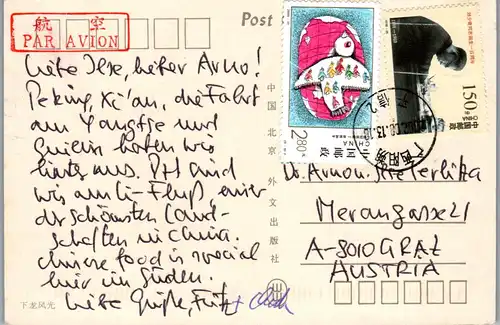 航 空
PAR AVION
Post
Liebe Ilse, lieber Arno!
Peking, Xi'an, die Fahrt
am Yangtse und
haben wir
hinter uns.
wir am Li-Fluß, einer
der schönsten Land-
schaften in China.
Chinese food is special
hier im Süden.
Liebe Grüße, Fritz +
下龙风光
中国 北京 外文出版社
280分
中国邮政
CHINA
150分
中国邮政
Dr. Arno
Merangasse 21
A-8010 GRAZ
AUSTRIA